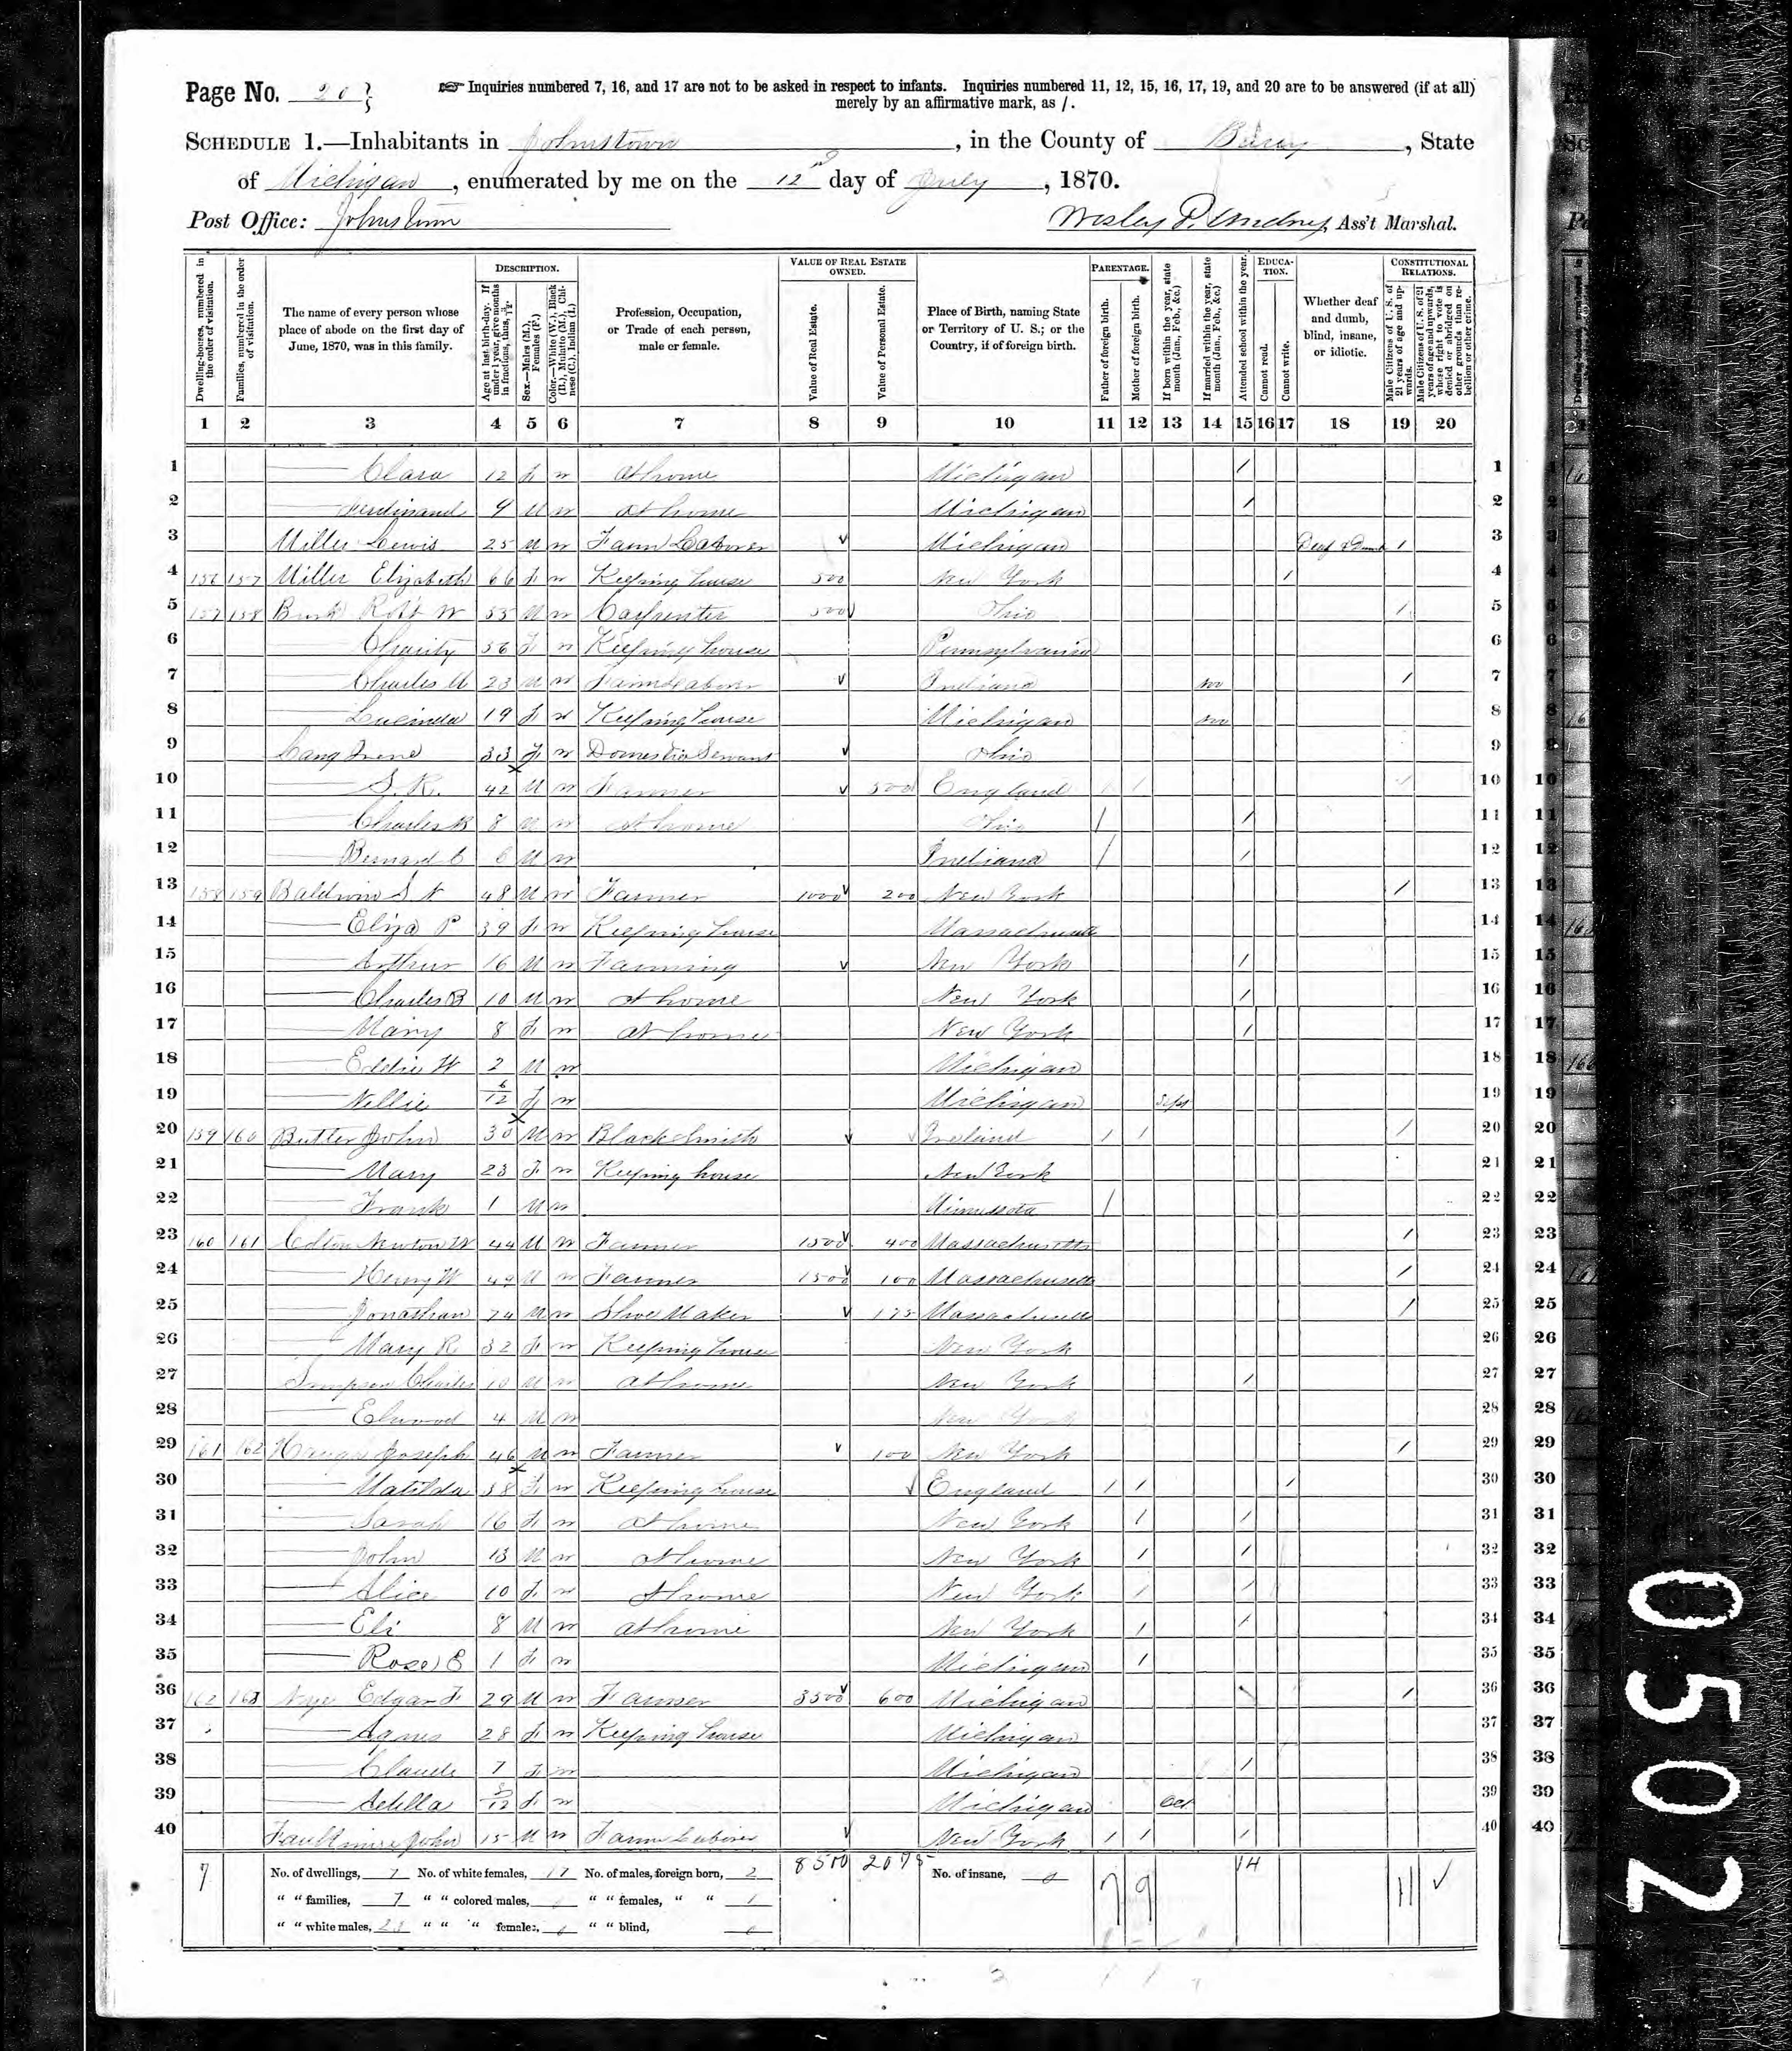 Page No. 20
☞ Inquiries numbered 7, 16, and 17 are not to be asked in respect to infants. Inquiries numbered 11, 12, 15, 16, 17, 19, and 20 are to be answered (if at all)
merely by an affirmative mark, as /.
SCHEDULE 1.—Inhabitants in Johnstown, in the County of Barry, State
of Michigan, enumerated by me on the 12 day of July, 1870.
Post Office: Johnstown
Wesley Ass't Marshal.
Dwelling-houses, numbered in the order of visitation.
Families, numbered in the order of visitation.
The name of every person whose place of abode on the first day of June, 1870, was in this family.
DESCRIPTION.
Age at last birth-day. If under 1 year, give months in fractions, thus, 3/12
Sex.—Males (M.), Females (F.)
Color.—White (W.), Black (B.), Mulatto (M.), Chinese (C.), Indian (I.)
Profession, Occupation, or Trade of each person, male or female.
VALUE OF REAL ESTATE OWNED.
Value of Real Estate.
Value of Personal Estate.
Place of Birth, naming State or Territory of U. S.; or the Country, if of foreign birth.
PARENTAGE.
Father of foreign birth.
Mother of foreign birth.
If born within the year, state month (Jan., Feb., &c.)
If married within the year, state month (Jan., Feb., &c.)
Attended school within the year.
EDUCATION.
Cannot read.
Cannot write.
Whether deaf and dumb, blind, insane, or idiotic.
CONSTITUTIONAL RELATIONS.
Male Citizens of U. S. of 21 years of age and upwards.
Male Citizens of U. S. of 21 years of age and upwards, whose right to vote is denied or abridged on other grounds than rebellion or other crime.
1 2 3 4 5 6 7 8 9 10 11 12 13 14 15 16 17 18 19 20
1 Clara 12 F W At home Michigan / 1
2 Ferdinand 9 M W At home Michigan / 2
3 Miller Lewis 25 M W Farm Laborer Michigan Deaf & Dumb / 3
4 156 157 Miller Elizabeth 66 F W Keeping house 500 New York / 4
5 157 158 Robt W 55 M W Carpenter 500 Ohio / 5
6 Charity 56 F W Keeping house Pennsylvania 6
7 Charles 23 M W Farm Laborer Indiana / 7
8 Lucinda 19 F W Keeping house Michigan 8
9 Irene 33 F W Domestic Servant Ohio 9
10 S. R. 42 M W Farmer 500 England / / / 10
11 Charles B 8 M W At home Ohio / / 11
12 Bernard C 6 M W Indiana / / 12
13 158 159 Baldwin S N 48 M W Farmer 1000 200 New York / 13
14 Eliza P 39 F W Keeping house Massachusetts 14
15 Arthur 16 M W Farming New York / 15
16 Charles B 10 M W At home New York / 16
17 Mary 8 F W At home New York / 17
18 Eddie W 2 M W Michigan 18
19 Nellie 6/12 F W Michigan Sept 19
20 159 160 Butler John 30 M W Blacksmith Ireland / / / 20
21 Mary 23 F W Keeping house New York 21
22 Frank 1 M W Minnesota / 22
23 160 161 Colton Newton W 44 M W Farmer 1500 400 Massachusetts / 23
24 Henry W 49 M W Farmer 1500 100 Massachusetts / 24
25 Jonathan 74 M W Shoe Maker 175 Massachusetts / 25
26 Mary R 32 F W Keeping house New York 26
27 Simpson Charles 10 M W At home New York / 27
28 Elwood 4 M W New York 28
29 161 162 Joseph 46 M W Farmer 100 New York / 29
30 Matilda 38 F W Keeping house England / / / 30
31 Sarah 16 F W At home New York / / 31
32 John 13 M W At home New York / / 32
33 Alice 10 F W At home New York / / 33
34 Eli 8 M W At home New York / / 34
35 Rose E 1 F W Michigan / 35
36 162 163 Nye Edgar F 29 M W Farmer 3500 600 Michigan / 36
37 Agnes 28 F W Keeping house Michigan 37
38 Claude 7 F W Michigan / 38
39 8/12 F W Michigan Oct 39
40 John 15 M W Farm Laborer New York / / / 40
7 No. of dwellings, 7 No. of white females, 17 No. of males, foreign born, 2 8500 2075 No. of insane, 0 7 9 14 11
" " families, 7 " " colored males, " " females, " " 1
" " white males, 23 " " " females, 0 " " blind, 0
0502